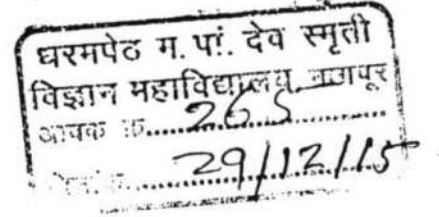 धरमपेठ म. पां. देव स्मृती
विज्ञान महाविद्यालय, नागपूर
आवक क्र....... 265
29/12/15